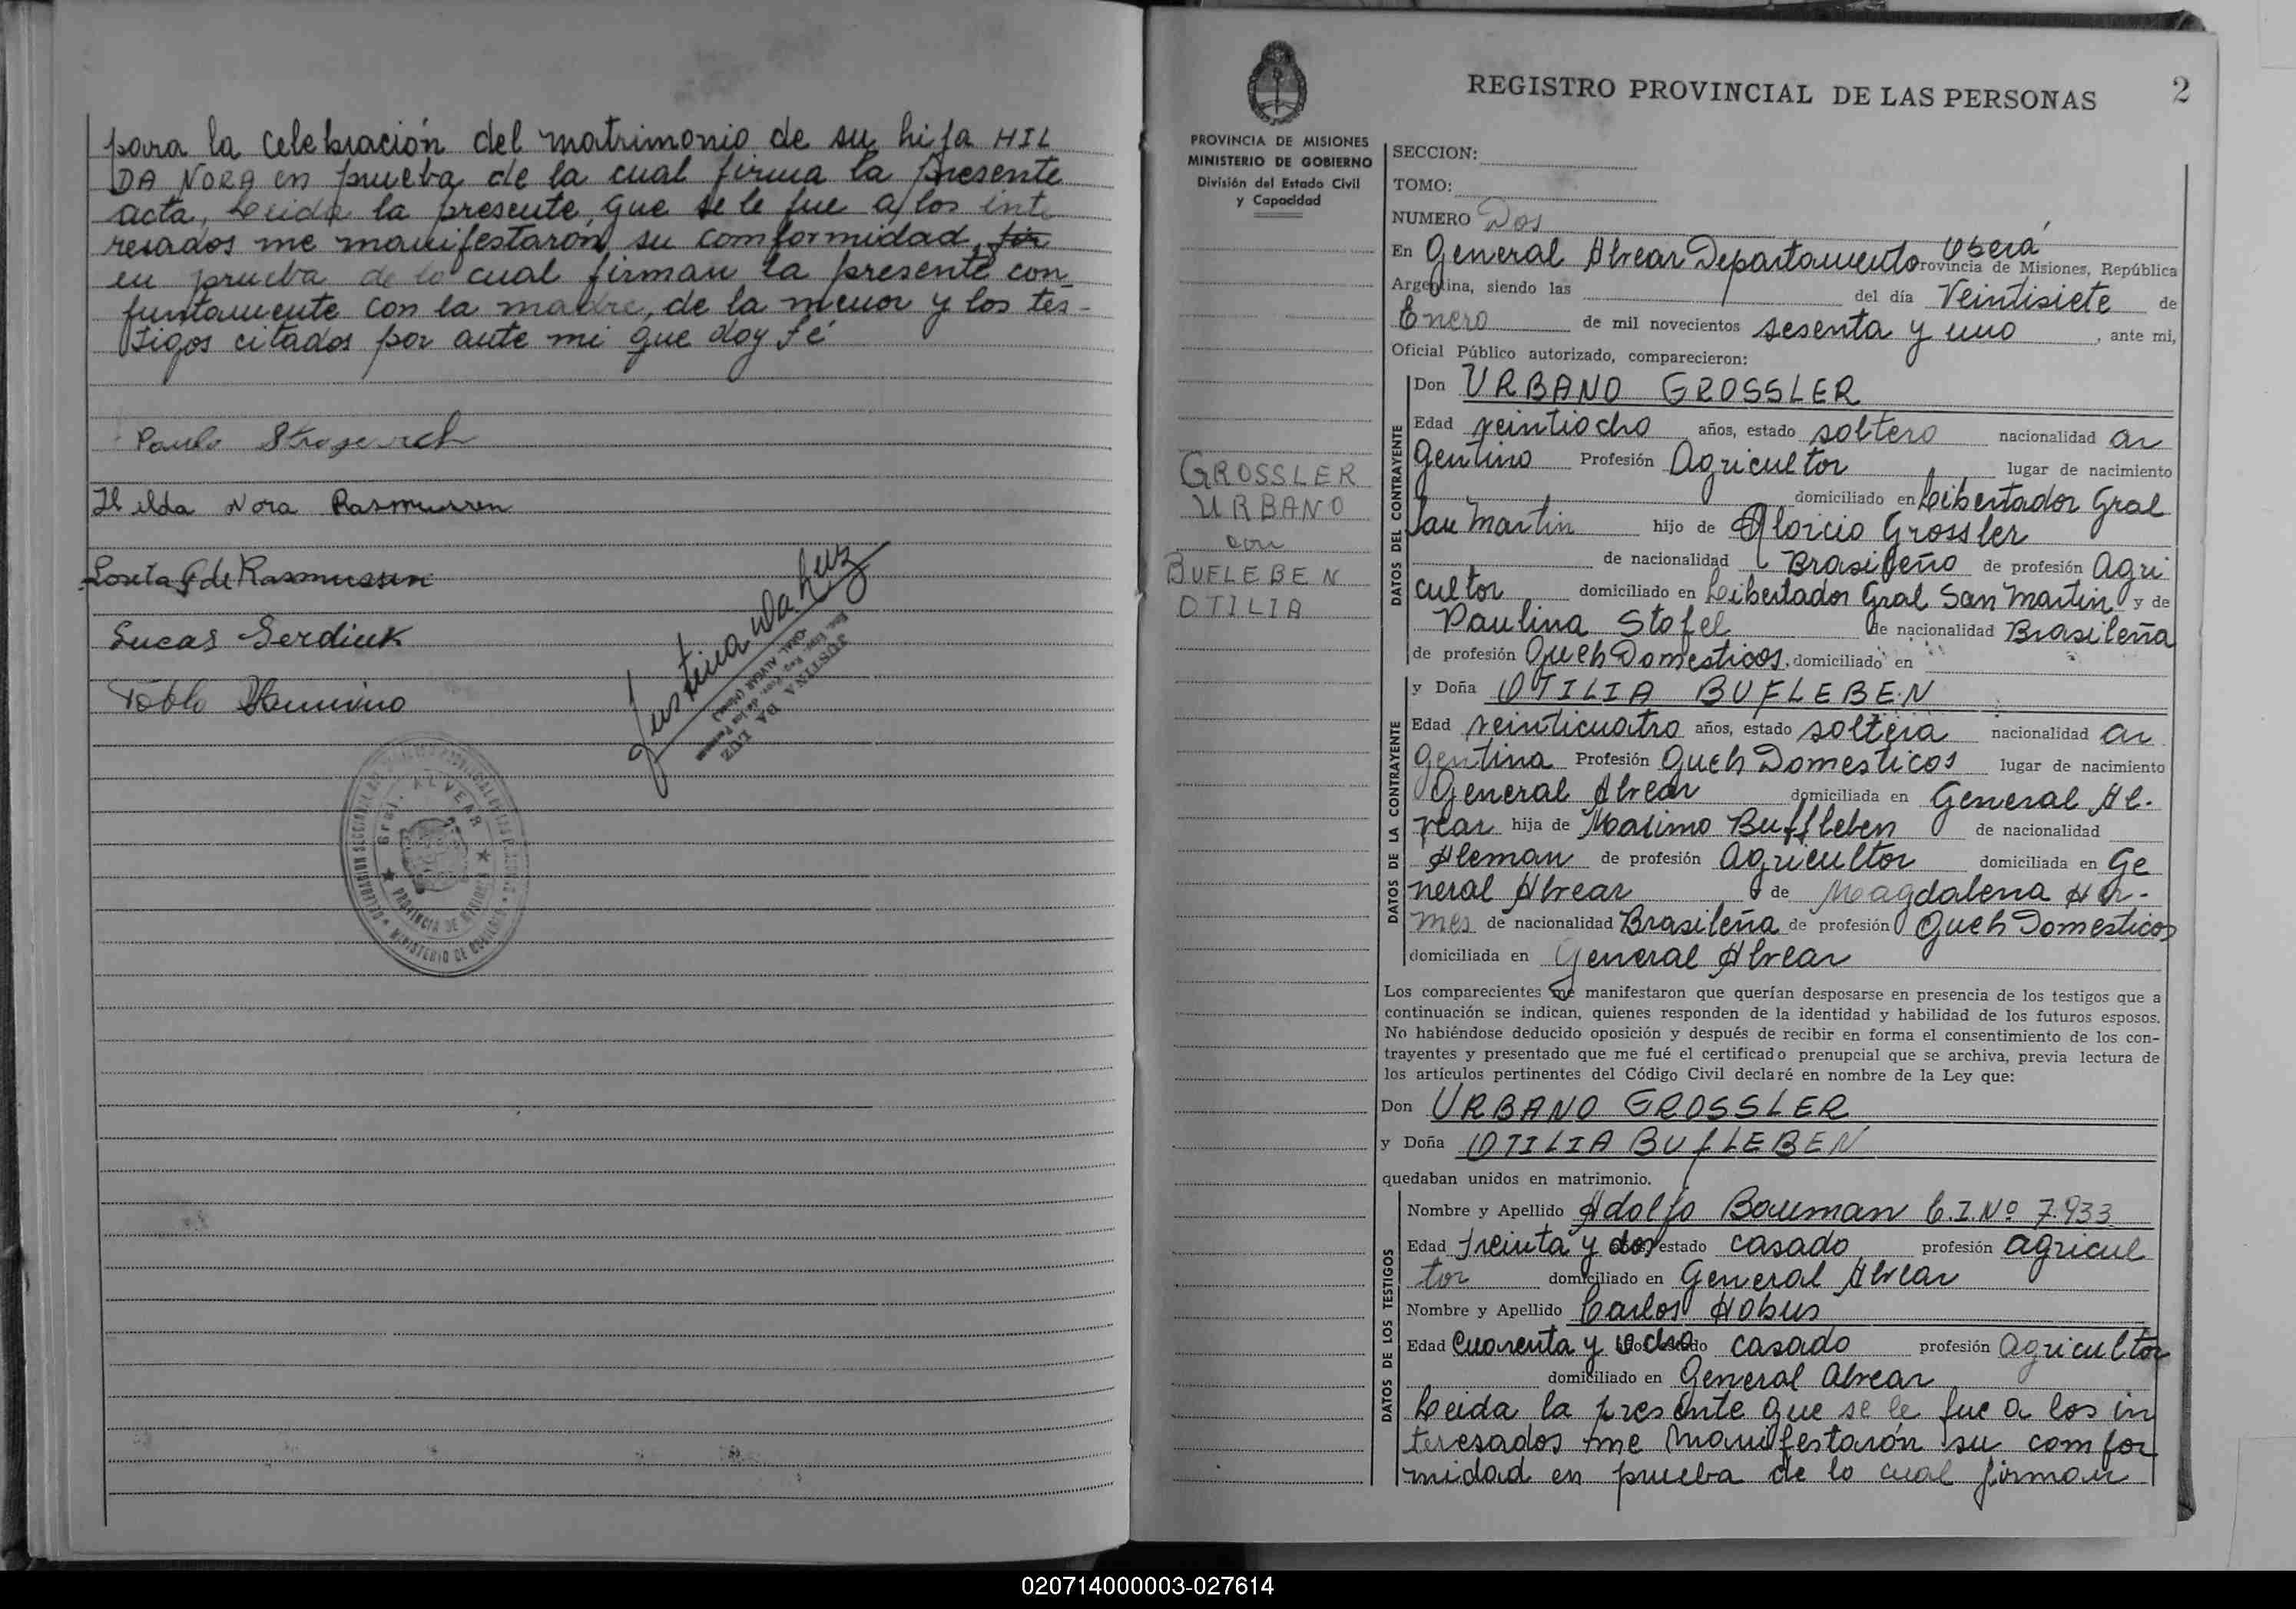 para la celebración del matrimonio de su hija HIL
DA NORA en prueba de la cual firma la presente
acta, Leida la presente, que se le fue a los inte
resados me manifestaron su comformidad, fir
en prueba de lo cual firman la presente con
juntamente con la madre, de la menor y los tes-
tigos citados por ante mi que doy fé
Paulo
Hilda Nora Rasmussen
de Rasmussen
Lucas Serdiuk
Justina da Luz
JUSTINA DA LUZ
GRAL. ALVEAR
PROVINCIA DE MISIONES
MINISTERIO DE GOBIERNO
REGISTRO PROVINCIAL DE LAS PERSONAS 2
PROVINCIA DE MISIONES
MINISTERIO DE GOBIERNO
División del Estado Civil
y Capacidad
GROSSLER
URBANO
con
BUFLEBEN
OTILIA
SECCION:
TOMO:
NUMERO Dos
En General Alvear Departamento Oberá Provincia de Misiones, República
Argentina, siendo las del día Veintisiete de
Enero de mil novecientos sesenta y uno, ante mi,
Oficial Público autorizado, comparecieron:
DATOS DEL CONTRAYENTE
Don URBANO GROSSLER
Edad veintiocho años, estado soltero nacionalidad ar
gentino Profesión Agricultor lugar de nacimiento
domiciliado en Libertador Gral
San Martin hijo de Aloicio Grossler
de nacionalidad Brasileño de profesión Agri
cultor domiciliado en Libertador Gral San Martin y de
Paulina Stofel de nacionalidad Brasileña
de profesión Queh Domesticos, domiciliado en " "
DATOS DE LA CONTRAYENTE
y Doña OTILIA BUFLEBEN
Edad veinticuatro años, estado soltera nacionalidad ar
gentina Profesión Queh Domesticos lugar de nacimiento
General Alvear domiciliada en General Al-
vear hija de Maximo Buffleben de nacionalidad
Aleman de profesión Agricultor domiciliada en Ge
neral Alvear y de Magdalena Her-
mes de nacionalidad Brasileña de profesión Queh Domesticos
domiciliada en General Alvear
Los comparecientes me manifestaron que querían desposarse en presencia de los testigos que a
continuación se indican, quienes responden de la identidad y habilidad de los futuros esposos.
No habiéndose deducido oposición y después de recibir en forma el consentimiento de los con-
trayentes y presentado que me fué el certificado prenupcial que se archiva, previa lectura de
los artículos pertinentes del Código Civil declaré en nombre de la Ley que:
Don URBANO GROSSLER
y Doña OTILIA BUFLEBEN
quedaban unidos en matrimonio.
DATOS DE LOS TESTIGOS
Nombre y Apellido Adolfo Bauman C.I.Nº 7.933
Edad treinta y dos estado casado profesión agricul
tor domiciliado en General Alvear
Nombre y Apellido Carlos Hobus
Edad Cuarenta y ocho estado casado profesión agricultor
domiciliado en General Alvear
Leida la presente que se le fue a los in
teresados me manifestarón su comfor
midad en prueba de lo cual firman
020714000003-027614